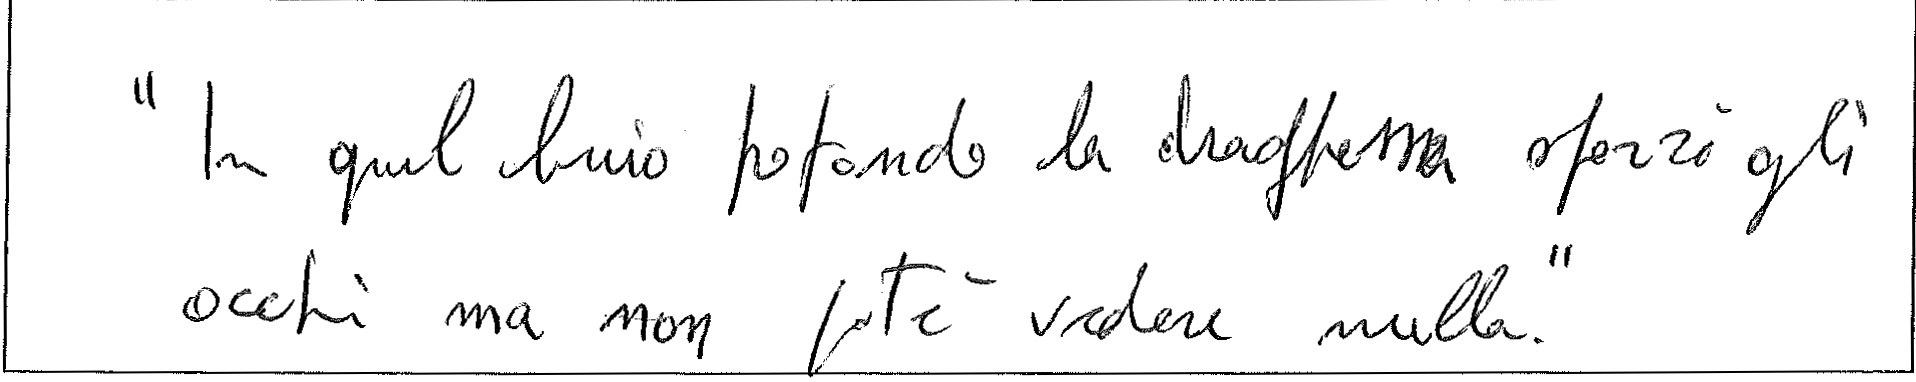 "In quel buio pofondo la draghessa sforzò gli
occhi ma non potè vedere nulla."